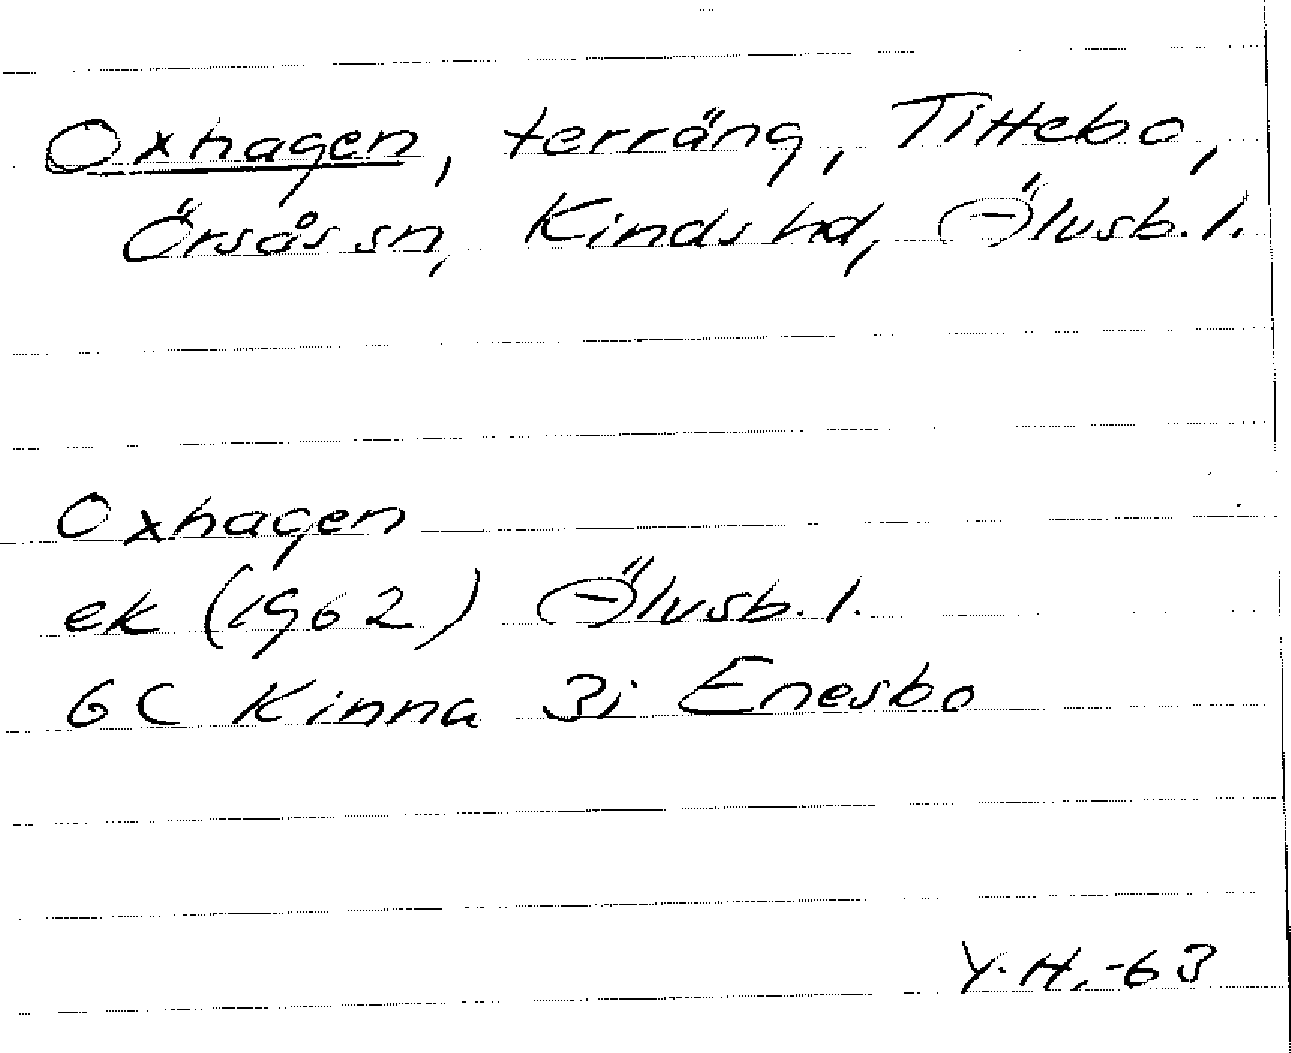 Oxhagen, terräng, Tittebo,
Örsås sn, Kinds hd, Älvsb. l.
Oxhagen
ek (1962) Älvsb. l.
6C Kinna 3i Enesbo
Y. H. -63